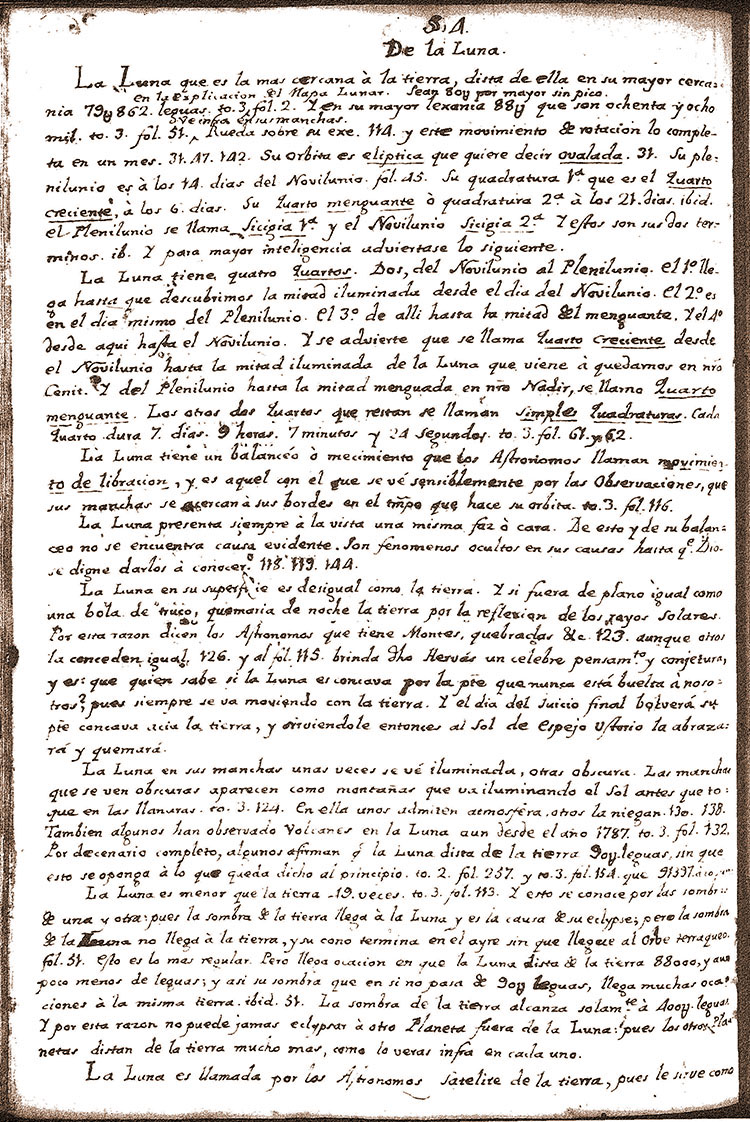 §. 4.
De la Luna.
La Luna que es la mas cercana à la tierra, dista de ella en su mayor cerca-
en la explicacion del Mapa Lunar. Sean 80y por mayor sin pico.
nia 79y862. leguas. to. 3. fol. 2. Y en su mayor lexania 88y que son ochenta y ocho
ve infra en sus manchas.
mil. to. 3. fol. 51. Rueda sobre su exe. 114. y este movimiento de rotacion lo comple-
ta en un mes. 31. 47. 142. Su orbita es eliptica que quiere decir ovalada. 31. Su ple-
nilunio es à los 14. dias del Novilunio. fol. 45. Su quadratura 1.ª que es el Quarto
creciente, à los 6. dias. Su Quarto menguante ò quadratura 2.ª à los 21. dias. ibid.
el Plenilunio se llama Sicigia 1.ª y el Novilunio Sicigia 2.ª Y estos son sus dos ter-
minos. ib. Y para mayor inteligencia adviertase lo siguiente.
La Luna tiene quatro Quartos. Dos, del Novilunio al Plenilunio. el 1.º lle-
ga hasta que descubrimos la mitad iluminada desde el dia del Novilunio. El 2.º es
en el dia mismo del Plenilunio. El 3.º de alli hasta la mitad del menguante. Y el 4.º
desde aqui hasta el Novilunio. Y se advierte que se llama Quarto Creciente desde
el Novilunio hasta la mitad iluminada de la Luna que viene à quedarnos en nro
Cenit. Y del Plenilunio hasta la mitad menguada en nro Nadir, se llamo Quarto
menguante. Los otros dos Quartos que restan se llaman simples Quadraturas. Cada
Quarto dura 7. dias. 9 horas. 7 minutos y 24 segundos. to. 3. fol. 61. y 62.
La Luna tiene un balanceo ò mecimiento que los Astronomos llaman movimien-
to de libracion, y es aquel con el que se vé sensiblemente por las Observaciones, que
sus manchas se acercan à sus bordes en el tmpo que hace su orbita. to. 3. fol. 116.
La Luna presenta siempre à la vista una misma faz ò cara. De esto y de su balan-
ceo no se encuentra causa evidente. Son fenomenos ocultos en sus causas hasta q.e Dios
se digne darlos à conocer. 118. 119. 144.
La Luna en su superficie es desigual como la tierra. Y si fuera de plano igual como
una bola de truco, quemaria de noche la tierra por la reflexion de los rayos solares.
Por esta razon dicen los Astronomos que tiene Montes, quebradas &c. 123. aunque otros
la conceden igual. 126. y al fol. 115. brinda dho Hervás un celebre pensam.to y conjetura,
y es: que quien sabe si la Luna es concava por la pte que nunca está buelta à noso-
tros? pues siempre se va moviendo con la tierra. Y el dia del Juicio final bolverá su
pte concava acia la tierra, y sirviendole entonces al Sol de Espejo Ustorio la abraza-
rá y quemará.
La Luna en sus manchas unas veces se vé iluminada, otras obscura. Las manchas
que se ven obscuras aparecen como montañas que va iluminando el Sol antes que to-
que en las llanuras. to. 3. 124. En ella unos admiten atmosfera, otros la niegan. 130. 138.
Tambien algunos han observado Volcanes en la Luna aun desde el año 1787. to. 3. fol. 132.
Por decenario completo, algunos afirman q̃ la Luna dista de la tierra 90y. leguas, sin que
esto se oponga à lo que queda dicho al principio. to. 2. fol. 257. y to. 3. fol. 114. que
La Luna es menor que la tierra 49. veces. to. 3. fol. 113. Y esto se conoce por las sombras
de una y otra: pues la sombra de la tierra llega à la Luna y es la causa de su eclypse; pero la sombra
de la Luna no llega à la tierra, y su cono termina en el ayre sin que llegue al Orbe terraqueo.
fol. 51. Esto es lo mas regular. Pero llega ocacion en que la Luna dista de la tierra 88000, y aun
poco menos de leguas; y asi su sombra que en si no pasa de 90y leguas, llega muchas oca-
ciones à la misma tierra. ibid. 51. La sombra de la tierra alcanza solam.te à 400y. leguas.
Y por esta razon no puede jamas eclypsar à otro Planeta fuera de la Luna: pues los otros Pla-
netas distan de la tierra mucho mas, como lo veras infra en cada uno.
La Luna es llamada por los Astronomos Satelite de la tierra, pues le sirve como